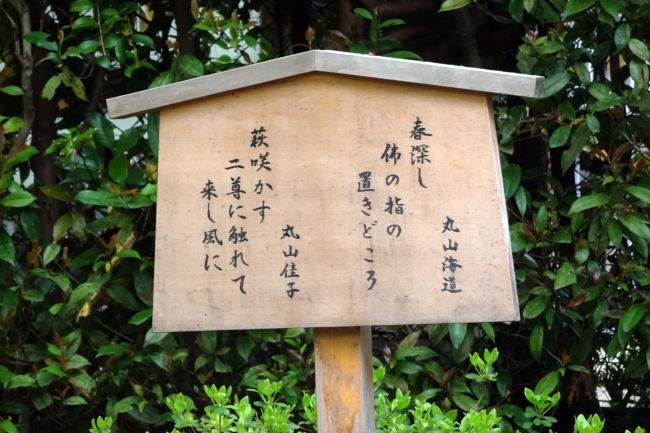 春深し
佛の指の
置きどころ
丸山海道
萩咲かす
二尊に触れて
来し風に
丸山佳子